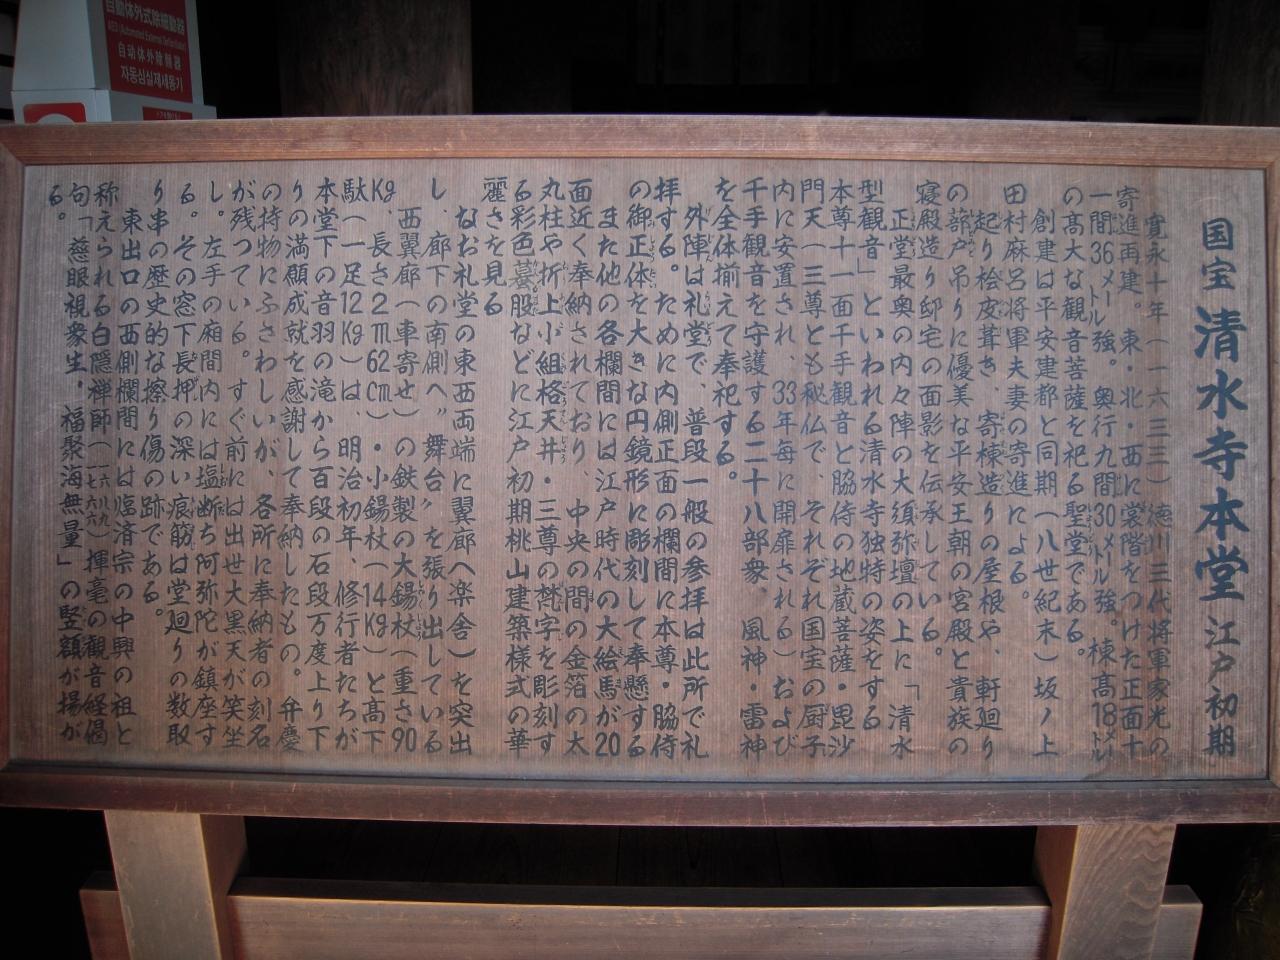 自動体外式除細動器
AED (Automated External Defibrillator)
自动体外除颤器
자동심실제세동기
国宝 清水寺本堂 江戸初期
寛永十年(一六三三)徳川三代将軍家光の
寄進再建。東・北・西に裳階をつけた正面十
一間36メートル強。奥行九間30メートル強。棟高18メートル
の高大な観音菩薩を祀る聖堂である。
創建は平安建都と同期(八世紀末)坂ノ上
田村麻呂将軍夫妻の寄進による。
起り桧皮葺き、寄棟造りの屋根や、軒廻り
の蔀戸吊りに優美な平安王朝の宮殿と貴族の
寝殿造り邸宅の面影を伝承している。
正堂最奥の内々陣の大須弥壇の上に「清水
型観音」といわれる清水寺独特の姿をする
本尊十一面千手観音と脇侍の地蔵菩薩・毘沙
門天(三尊とも秘仏で、それぞれ国宝の厨子
内に安置され、33年毎に開扉される)および
千手観音を守護する二十八部衆、風神・雷神
を全体揃えて奉祀する。
外陣は礼堂で、普段一般の参拝は此所で礼
拝する。ために内側正面の欄間に本尊・脇侍
の御正体を大きな円鏡形に彫刻して奉懸する
また他の各欄間には江戸時代の大絵馬が20
面近く奉納されており、中央の間の金箔の太
丸柱や折上小組格天井・三尊の梵字を彫刻す
る彩色蟇股などに江戸初期桃山建築様式の華
麗さを見る
なお礼堂の東西両端に翼廊へ楽舎)を突出
し、廊下の南側へ〝舞台〟を張り出している
西翼廊(車寄せ)の鉄製の大錫杖(重さ90
Kg、長さ2m62cm)・小錫杖(14Kg)と高下
駄(一足12Kg)は、明治初年、修行者たちが
本堂下の音羽の滝から百段の石段万度上り下
りの満願成就を感謝して奉納したもの。弁慶
の持物にふさわしいが、各所に奉納者の刻名
が残っている。すぐ前には出世大黒天が笑坐
し。左手の廂間内には塩断ち阿弥陀が鎮座す
る。その窓下長押の深い痕筋は堂廻りの数取
り串の歴史的な擦り傷の跡である。
東出口の西側欄間には臨済宗の中興の祖と
称えられる白隠禅師(一六八九一七六八)揮毫の観音経偈
句「慈眼視衆生・福聚海無量」の竪額が揚が
る。